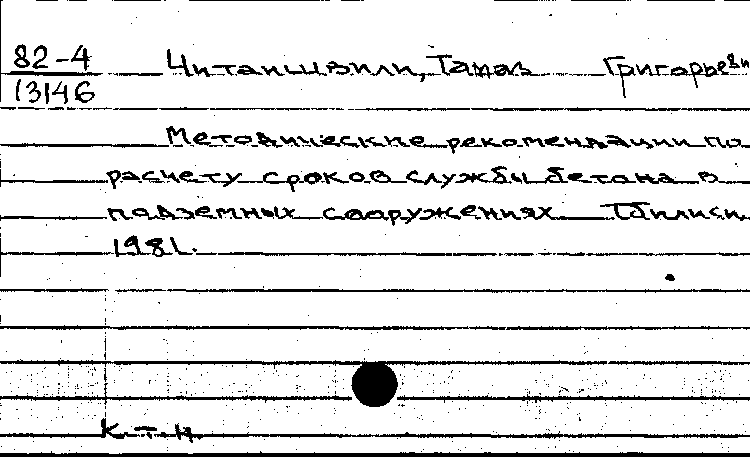 82-4 Читаишвили, Тамаз Григорьеви
13146
Методические рекомендации по
расчету сроков службы бетона в
подземных сооружениях Тбилиси,
1981.
К.т.н.